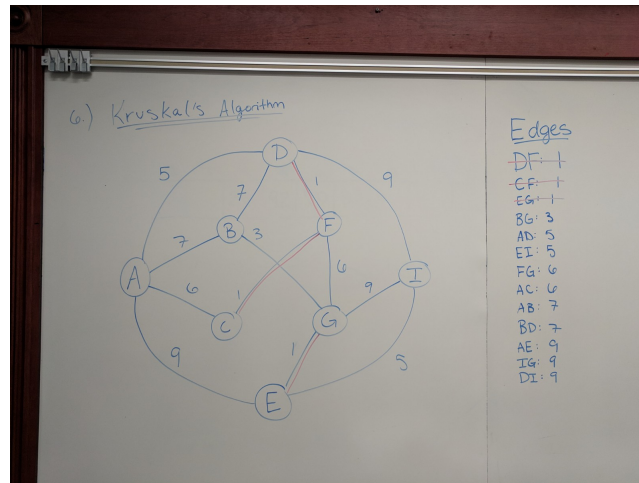 6.) Kruskal's Algorithm
D
5
1
9
7
B
3
F
7
A
6
6
I
1
9
C
G
9
1
5
E
Edges
DF: 1
CF: 1
EG: 1
BG: 3
AD: 5
EI: 5
FG: 6
AC: 6
AB: 7
BD: 7
AE: 9
IG: 9
DI: 9